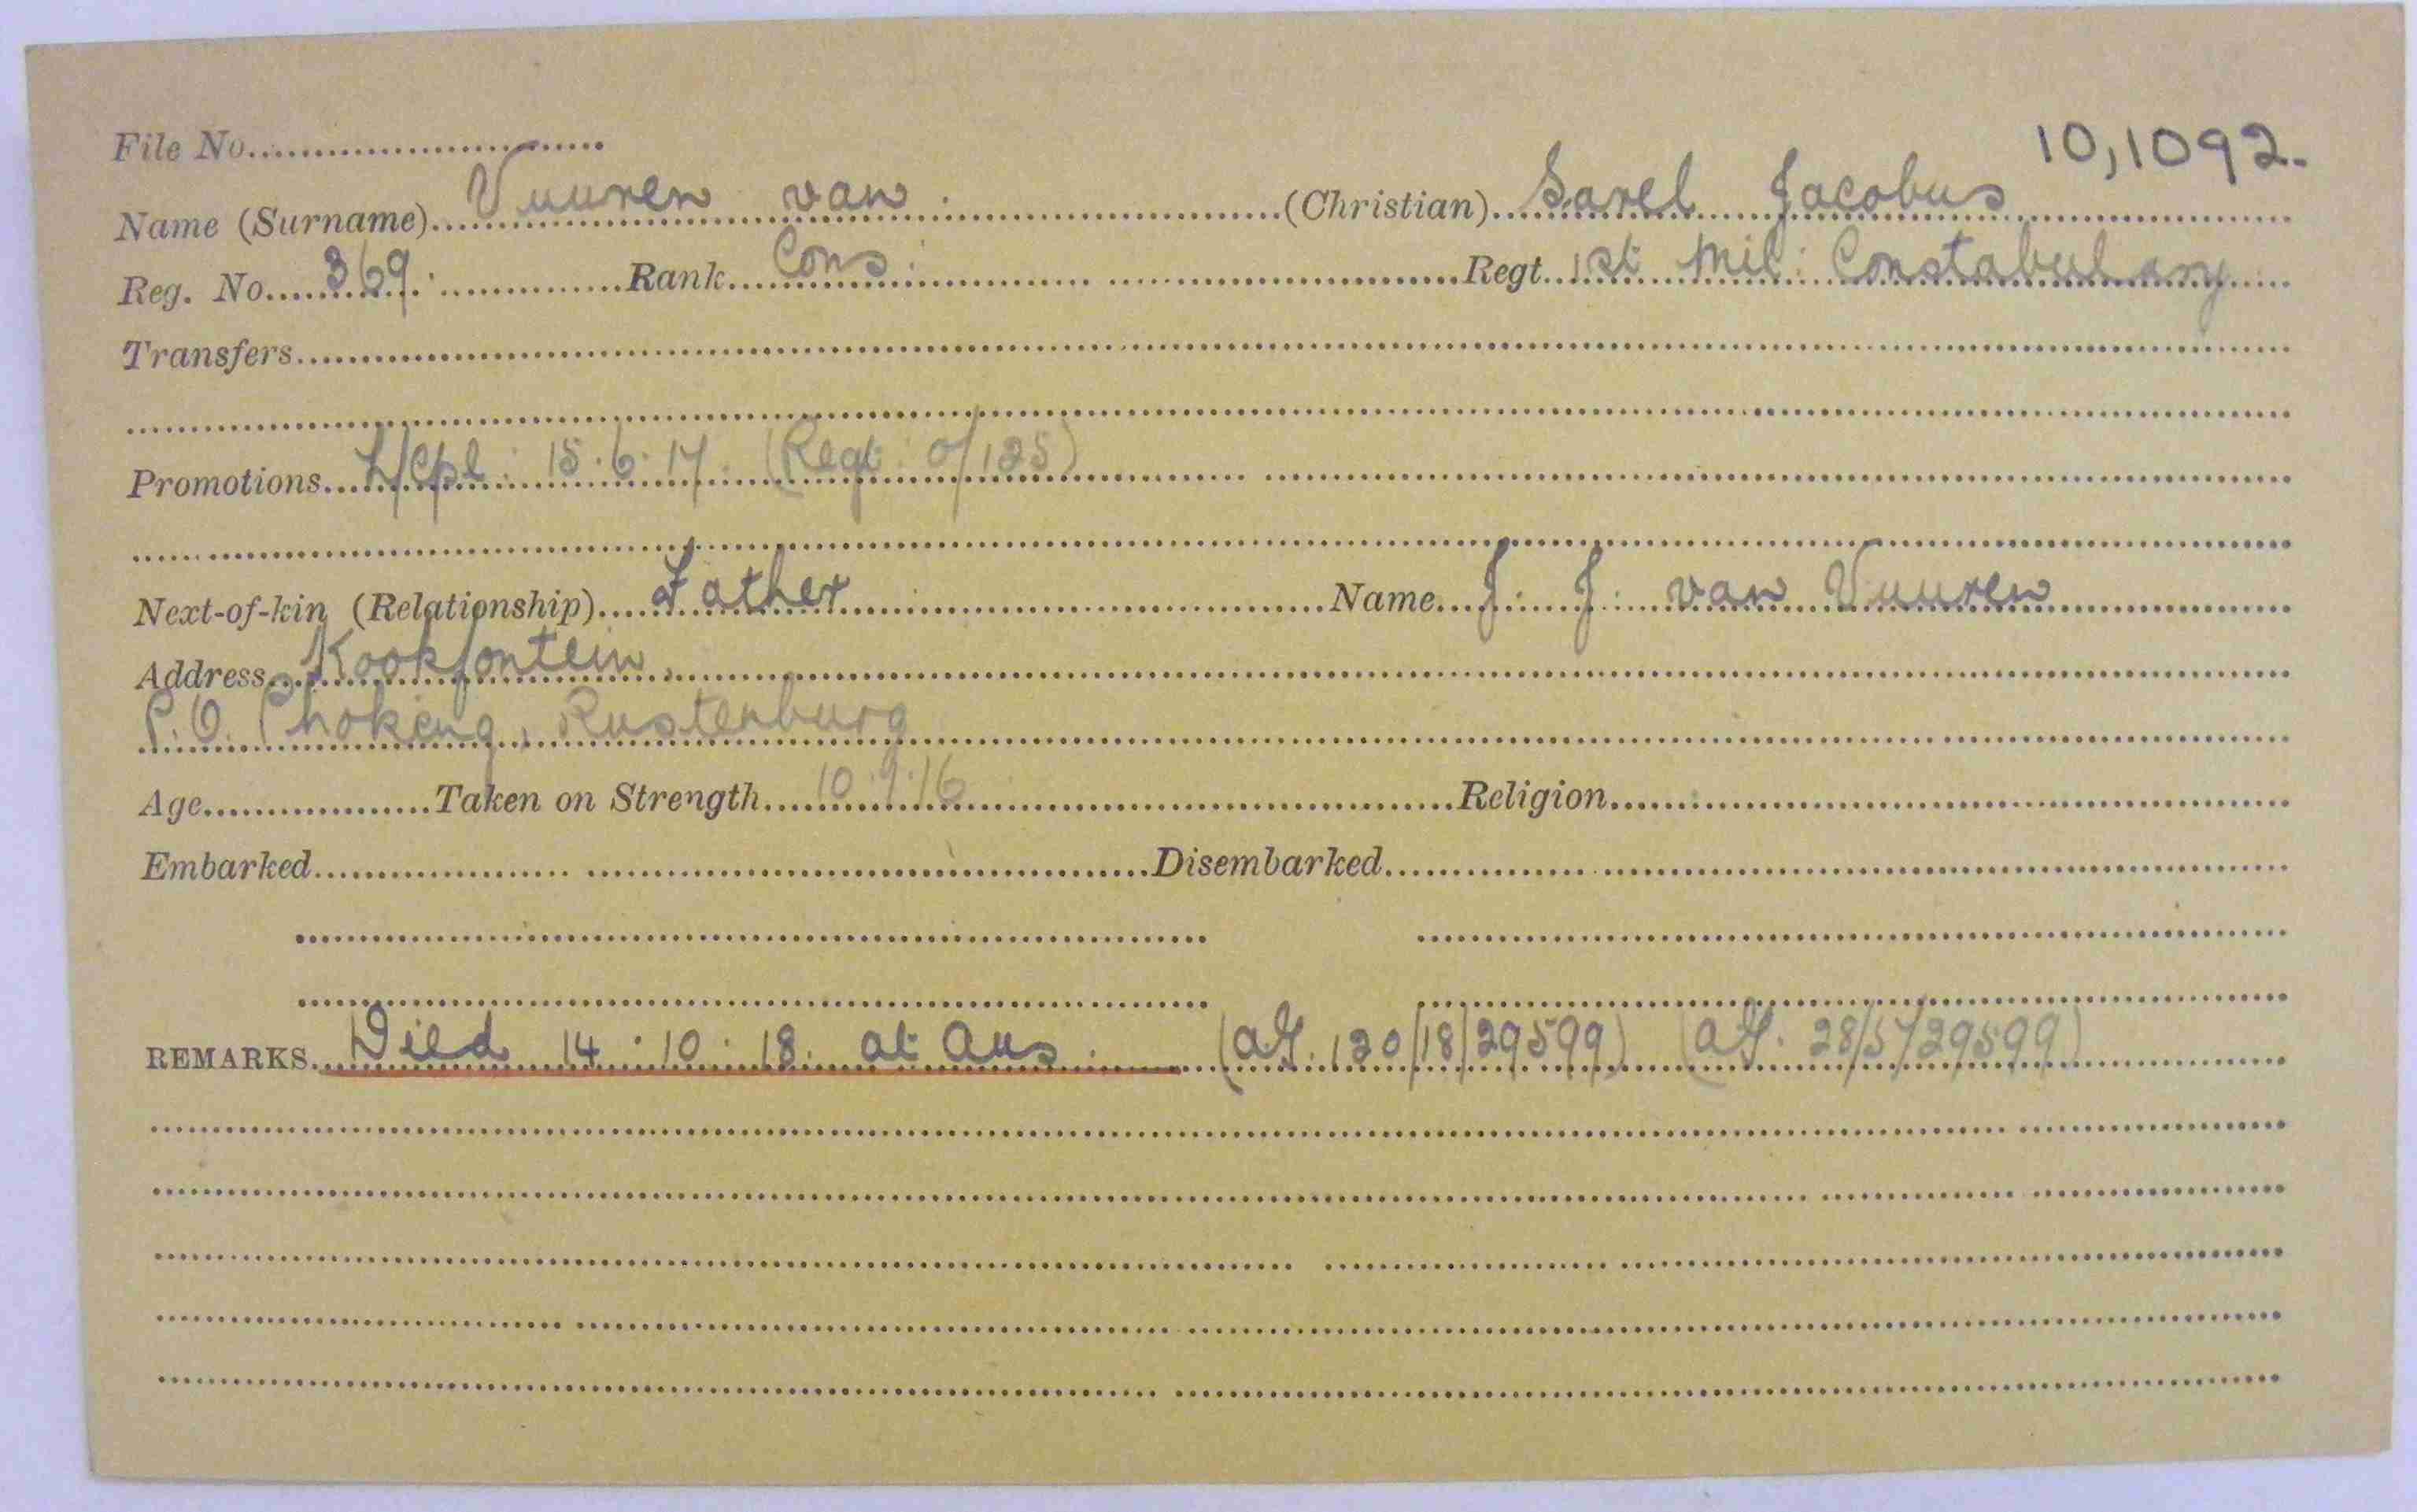 10,1092.
File No.
Name (Surname) Vuuren van (Christian) Sarel Jacobus
Reg. No. 369. Rank Cons: Regt. 1st Mil: Constabulary
Transfers
Promotions L/Cpl: 15.6.17. (Regt: o/125)
Next-of-kin (Relationship) Father Name J. J. van Vuuren
Address Kookfontein,
P.O. Phokeng, Rustenburg
Age Taken on Strength 10.9.16 Religion
Embarked Disembarked
REMARKS. Died 14.10.18. at Aus. (AG. 120/18/29599) (AG. 28/5/29599)